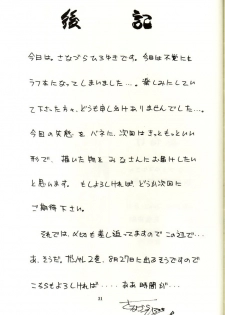 後記
今日は。さながらひろゆきです。今回は不覚にも
うすホになってしまいました…。楽しみにしてい
て下さった方々、どうも申し訳ありませんでした…。
今回の失態をバネに、次回はきっともっといい
形で、描いた物をみなさんにお届けしたい
と思います。もしよろしければ、どうか次回に
ご期待下さい。
それでは、〆切も差し迫ってますのでこの辺で…
あ、そうだ。2巻、8月27日に出るそうですので
こちらもよろしければ……ああ時間が…
31